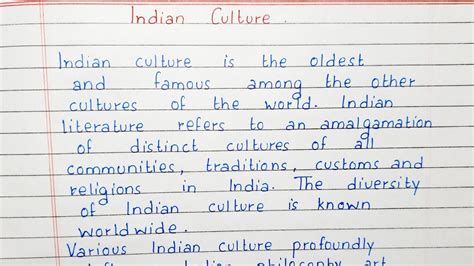 Indian Culture.
Indian culture is the oldest
and famous among the other
cultures of the world. Indian
literature refers to an amalgamation
of distinct cultures of all
communities, traditions, customs and
religions in India. The diversity
of Indian culture is known
worldwide.
Various Indian culture profoundly
philosophy art